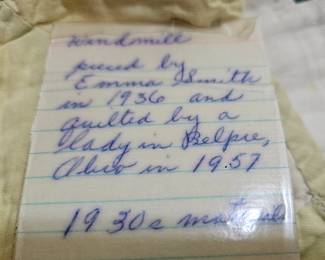 Windmill
pieced by
Emma Smith
in 1936 and
quilted by a
lady in Belpre,
Ohio in 1957
1930s material